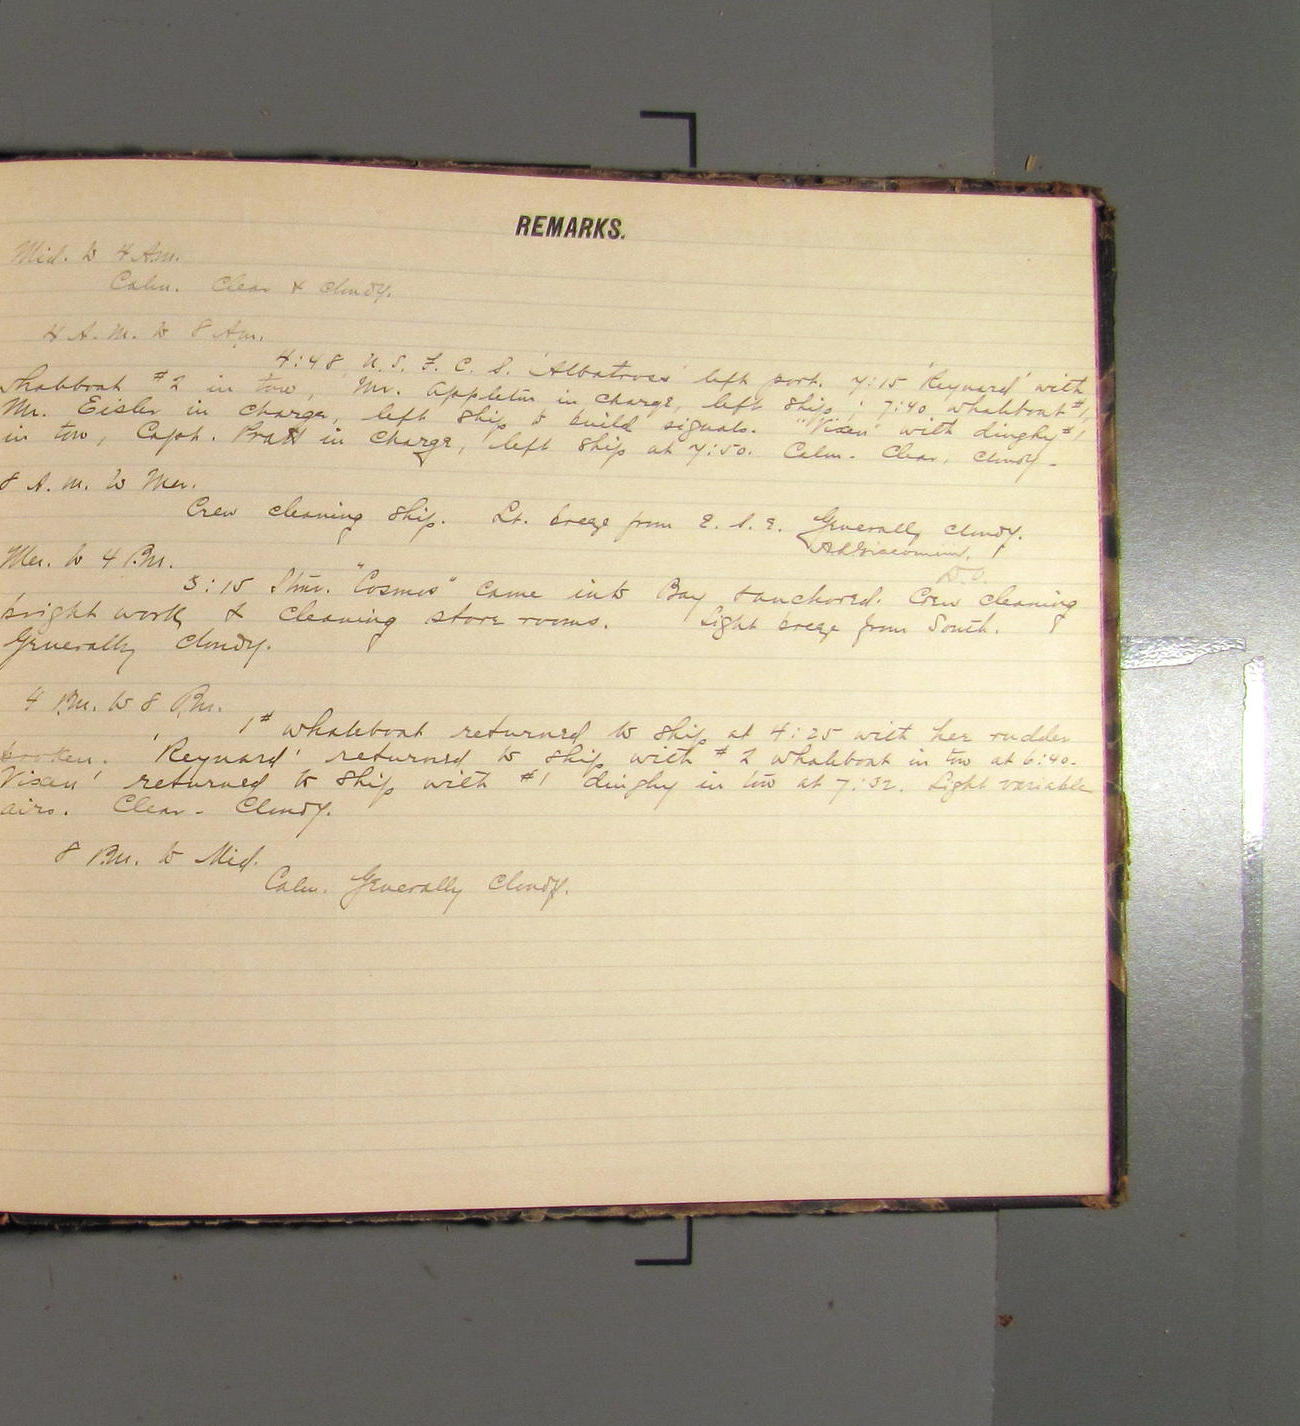 REMARKS.
Mid. to 4 A.m.
Calm. Clear & cloudy.
4 A.m. to 8 A.m.
4:48 U.S.F.C.S. 'Albatross' left port. 7:15 'Reynard' with
whaleboat #2 in tow, Mr. Appleton in charge, left ship; 7:40 whaleboat #1,
Mr. Eisler in charge, left ship to build signals. "Vixen" with dinghy #1
in tow, Capt. Pratt in charge, left ship at 7:50. Calm. Clear, cloudy.
8 A.m. to Mer.
Crew cleaning ship. Lt. breeze from E.S.E. Generally cloudy.
Mer. to 4 P.m.
3:15 Stmr. "Cosmos" came into Bay & anchored. Crew cleaning
bright work & cleaning store rooms. Light breeze from South.
Generally cloudy.
4 P.m. to 8 P.m.
1# whaleboat returned to ship at 4:25 with her rudder
broken. 'Reynard' returned to ship with #2 whaleboat in tow at 6:40.
Vixen' returned to ship with #1 dinghy in tow at 7:32. Light variable
airs. Clear - Cloudy.
8 P.m. to Mid.
Calm. Generally cloudy.